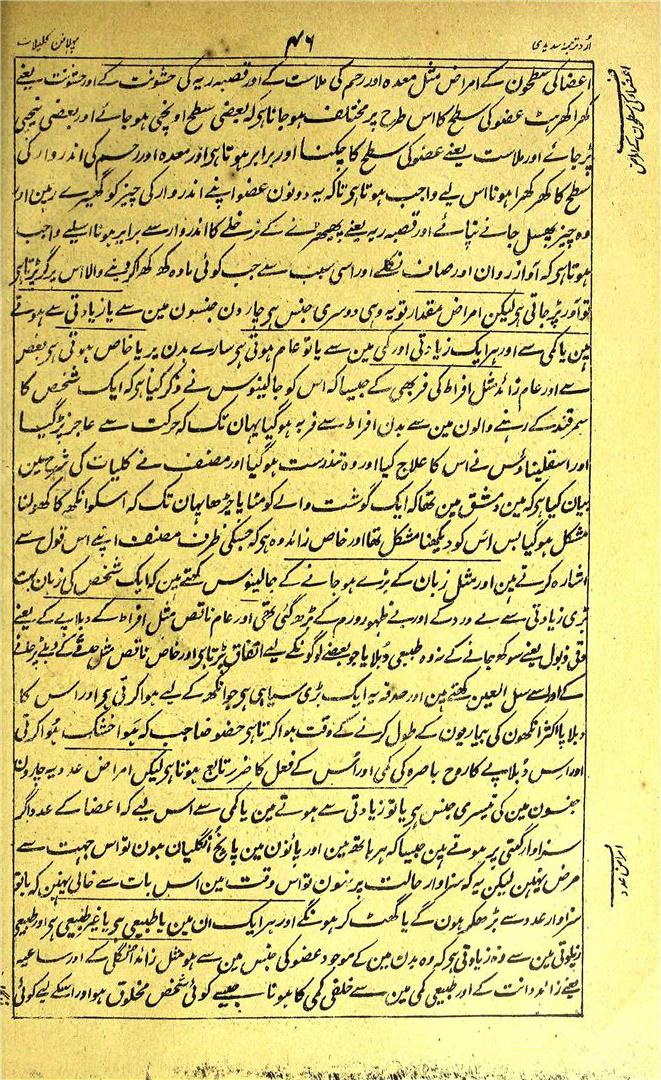 اردو ترجمہ سدیدی
۴۶
پہلا فن کلیات
اعضا کی سطحون کے امراض
اعضا کی سطحون کے امراض مثل معدہ اور رحم کی ملاست کے اور قصبہ ریہ کی خشونت کے اور خشونت یعنے
کھراکھرہٹ عضو کی سطح کا اس طرح پر مختلف ہو جانا ہی کہ بعضی سطح اونچی ہو جائے اور بعضی نیچی
پڑ جائے اور ملاست یعنے عضو کی سطح کا چکنا اور برابر ہونا ہی اور معدہ اور رحم کی اندروار کی
سطح کا کھرکھرا ہونا اس لیے واجب ہوتا ہی تاکہ یہ دونون عضو اپنے اندروار کی چیز کو گھیرے رہین اور
وہ چیز پھسل جانے نپائے اور قصبہ ریہ یعنے پھیپھڑے کے نرخلے کا اندروار سے برابر ہونا اسلیے واجب
ہوتا ہی کہ آواز روان اور صاف نکلے اور اسی سبب سے جب کوئی مادہ کھرکھرا کردینے والا اس پر گر پڑتا ہی
تو آواز پڑ جاتی ہی لیکن امراض مقدار تو یہ وہی دوسری جنس ہی چار ون جنسون مین سے یا زیادتی سے ہوتے
ہین یا کمی سے اور ہر ایک زیادتی اور کمی مین سے یا تو عام ہوتی ہی سارے بدن پر یا خاص ہوتی ہی بعض
سے اور عام زائد مثل افراط کی فربھی کے جیسا کہ اس کو جالینوس نے ذکر کیا ہی کہ ایک شخص کا
سمرقند کے رہنے والون مین سے بدن افراط سے فربہ ہو گیا یہان تک کہ حرکت سے عاجز پڑ گیا
اور اسقلیناؤس نے اس کا علاج کیا اور وہ تندرست ہو گیا اور مصنف نے کلیات کی شرح مین
بیان کیا ہی کہ مین دمشق مین تھا کہ ایک گوشت والے کو مٹاپا چڑھا یہان تک کہ اسکو آنکھ کا کھولنا
مشکل ہو گیا بس اس کو دیکھنا مشکل تھا اور خاص زائد وہ ہی کہ جسکی طرف مصنف اپنے اس قول سے
اشارہ کرتے ہین اور مثل زبان کے بڑے ہو جانے کے جالینوس کہتے ہین کہ ایک شخص کی زبان بہت
بڑی زیادتی سے بے درد کے اور بے ظہور ورم کے بڑھ گئی تھی اور عام ناقص مثل افراط کے دبلاپے کے یعنے
دقی ذبول یعنے سوکھ جانے کے نہ وہ طبیعی دبلاپا جو بعضے لوگونکے لیے اتفاق پڑتا ہی اور خاص ناقص مثل حدقے کے دبلے پڑ جانے
کے اور اسے سل العین کہتے ہین اور حدقہ یہ ایک بڑی سیاہی ہی جو آنکھ کے لیے ہوا کرتی ہی اور اس کا
دبلاپا اکثر آنکھون کی بیماریون کے طول کرنے کے وقت ہوا کرتا ہی خصوصًا جب کہ ہوا خشک ہوا کرتی
اور اس دبلاپے کا روح باصرہ کی کمی اور اس کے فعل کا ضرر تابع ہوتا ہی لیکن امراض عددیہ چارون
جنسون مین کی تیسری جنس ہی یا تو زیادتی سے ہوتے ہین یا کمی سے اس لیے کہ اعضا کے عدد اگر
سزاوار گنتی پر ہوتے ہین جیسا کہ ہر ہاتھ مین اور پائون مین پانچ انگلیان ہون تو اس جہت سے
مرض نہین لیکن یہ کہ سزاوار حالت پر نہون تو اس وقت مین اس بات سے خالی نہین کہ یا تو
سزاوار عدد سے بڑھکر ہون گے یا گھٹ کر ہونگے اور ہر ایک ان مین یا طبیعی ہی یا غیر طبیعی ہی اور طبیعی
زیادتی مین سے وہ زیادتی ہی کہ وہ بدن مین کے موجود عضو کی جنس مین سے ہو مثل زائد انگلی کے اور ساغیہ
یعنے زائد دانت کے اور طبیعی کمی مین سے خلقی کمی کا ہونا جیسے کوئی شخص مخلوق ہو اور اسکے لیے کوئی
امراض عدد